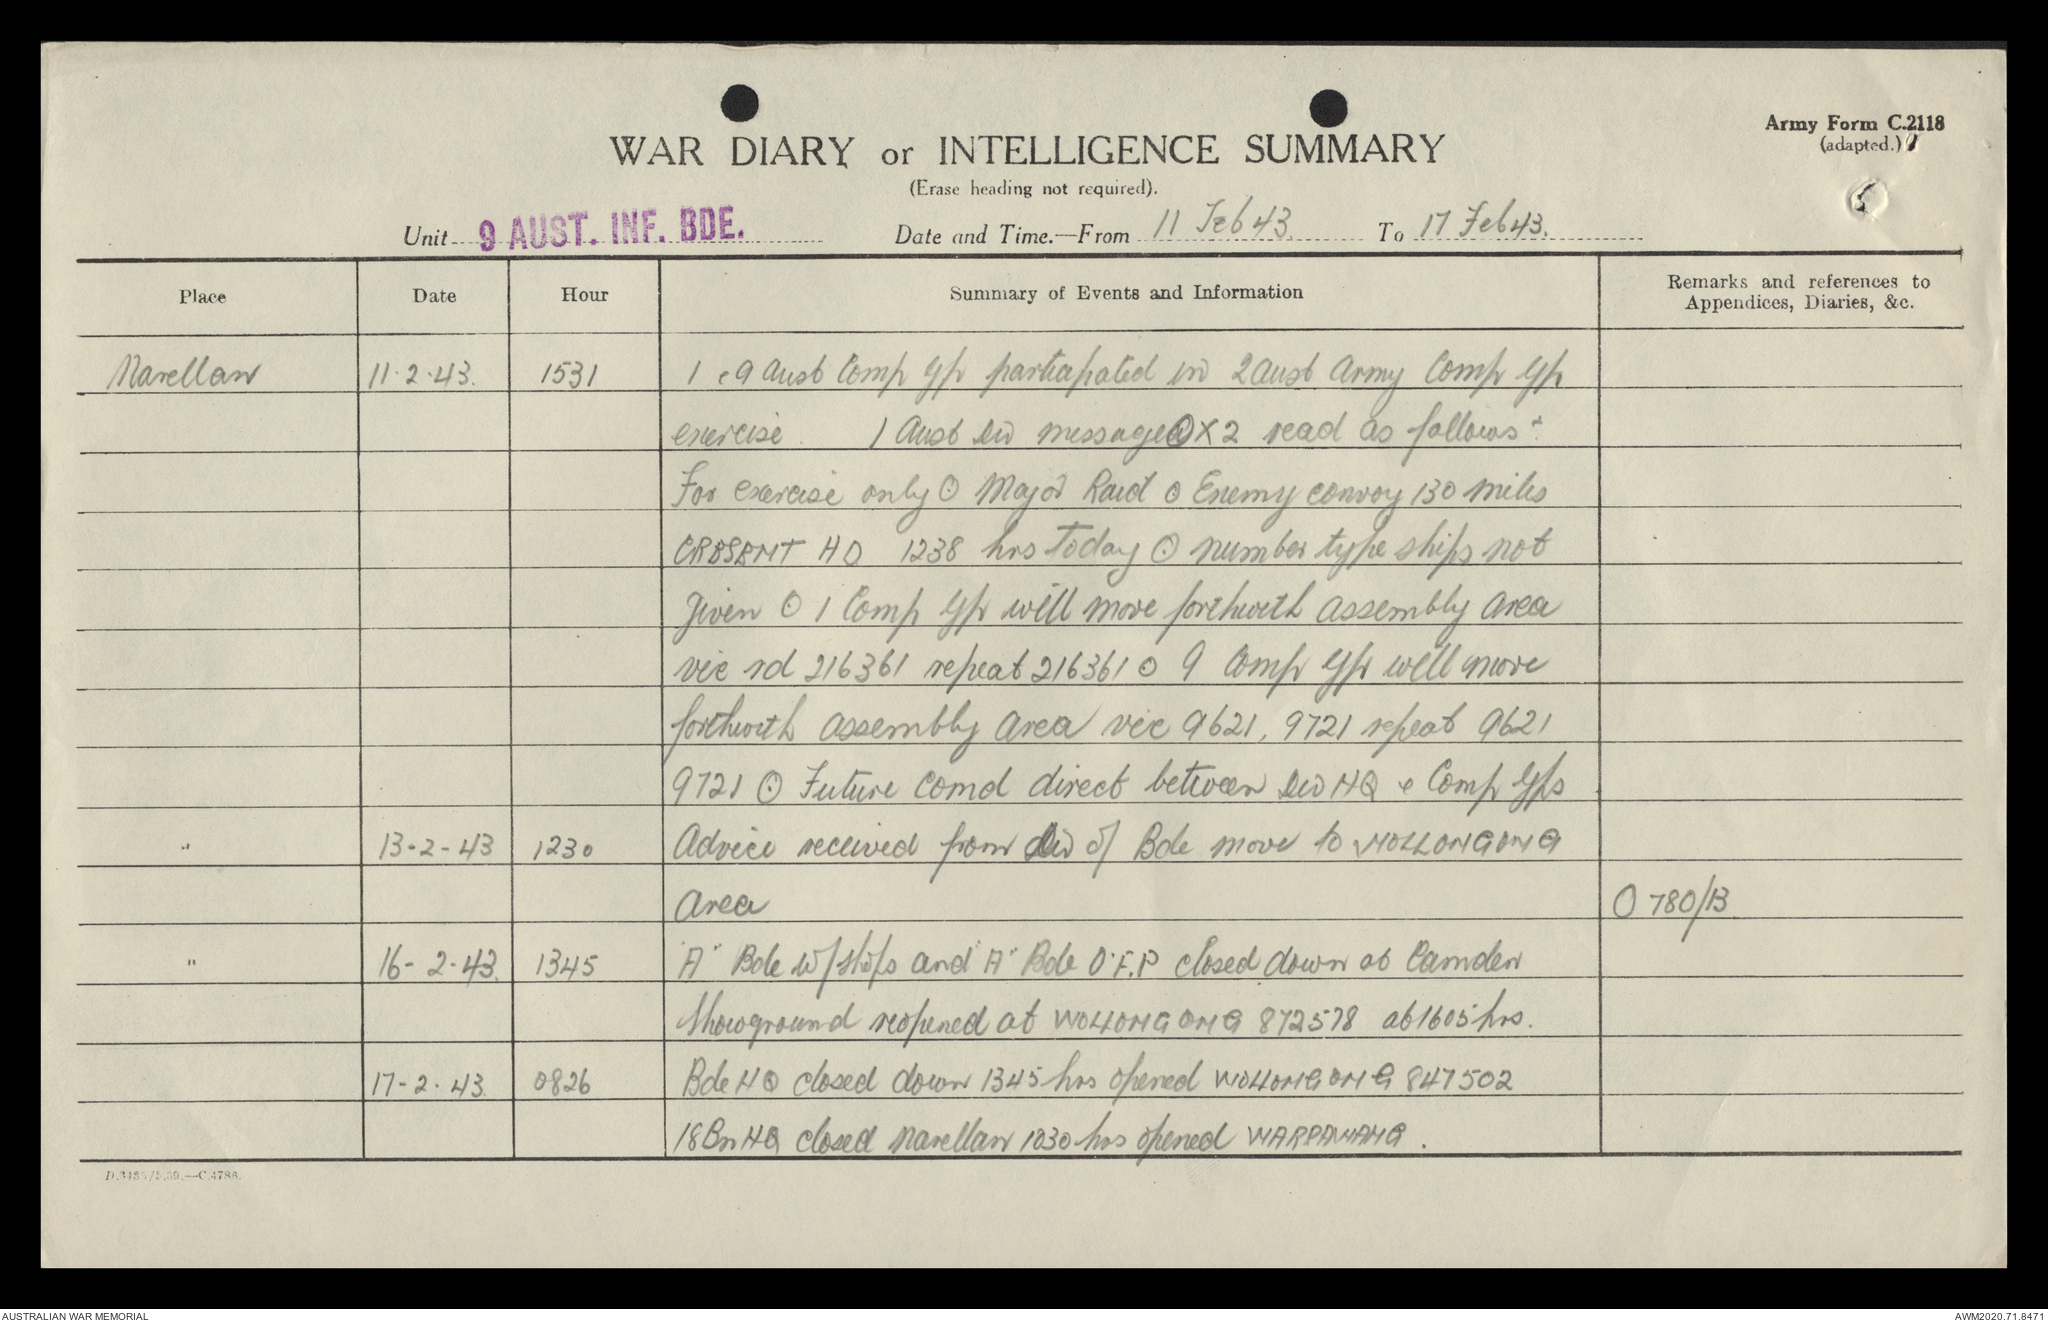 Army Form C.2118
(adapted.)
WAR DIARY or INTELLIGENCE SUMMARY
(Erase heading not required).
Unit 9 AUST. INF. BDE. Date and Time.—From 11 Feb 43. To 17 Feb 43.
Place Date Hour Summary of Events and Information Remarks and references to
Appendices, Diaries, &c.
Narellan 11.2.43. 1531 1 & 9 Aust Comp Gp participated in 2 Aust Army Comp Gp
exercise. 1 Aust Div message OX2 read as follows :-
For exercise only ⊙ Major Raid ⊙ Enemy convoy 130 miles
CRESENT HD 1238 hrs Today ⊙ number type ships not
given ⊙ 1 Comp Gp will move forthwith assembly area
vic rd 216361 repeat 216361 ⊙ 9 Comp Gp will move
forthwith assembly area vic 9621, 9721 repeat 9621
9721 ⊙ Future comd direct between Div HQ & Comp Gps
" 13-2-43 1230 Advice received from Div of Bde move to WOLLONGONG
area O 780/13
" 16-2-43. 1345 "A" Bde W/shops and "A" Bde O.F.P closed down at Camden
Showground reopened at WOLLONGONG 872578 at 1605 hrs.
17-2.43. 0826 Bde HQ closed down 1345 hrs opened WOLLONGONG 847502
18 Bn HQ closed Narellan 1030 hrs opened WARRAWANG.
D.3483/5.39.—C.4788.
AUSTRALIAN WAR MEMORIAL
AWM2020.71.8471